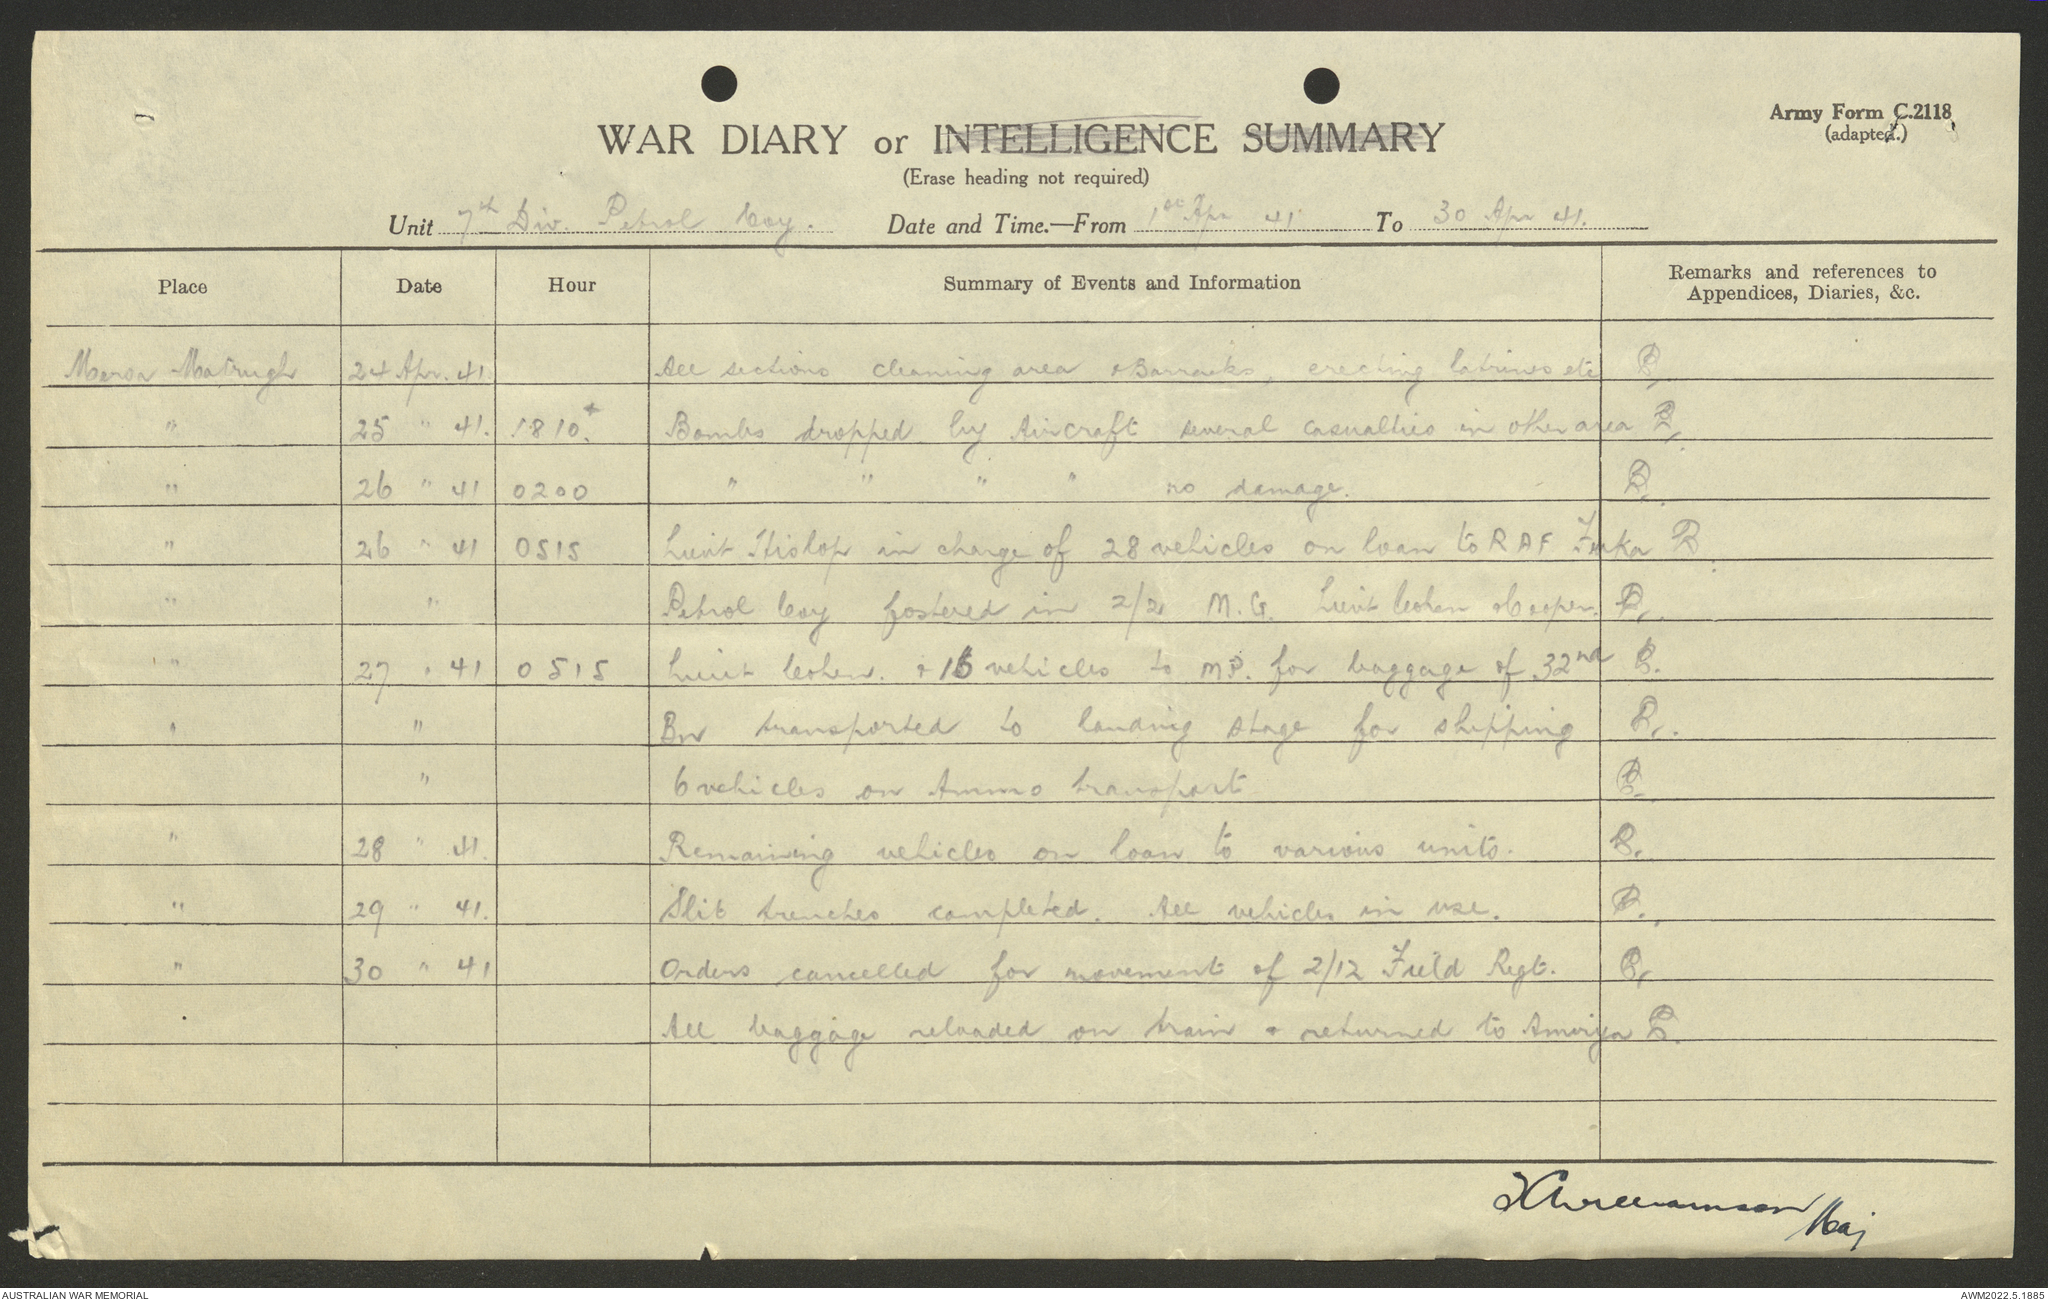 Army Form C.2118
(adapted.)
WAR DIARY or INTELLIGENCE SUMMARY
(Erase heading not required)
Unit 7th Div. Petrol Coy. Date and Time.—From 1st Apr 41 To 30 Apr 41.
Place Date Hour Summary of Events and Information Remarks and references to
Appendices, Diaries, &c.
Mersa Matrugh 24 Apr. 41. All sections cleaning area & Barracks, erecting latrines etc
" 25 " 41. 1810. Bombs dropped by Aircraft several casualties in other area
" 26 " 41 0200 " " " " no damage.
" 26 " 41 0515 Lieut Hislop in charge of 28 vehicles on loan to RAF Fuka
" " Petrol Coy fostered in 2/2 M.G. Lieut Cohen & Cooper.
" 27 " 41 0515 Lieut Cohen. & 16 vehicles to MP. for baggage of 32nd
" " Bn transported to landing stage for shipping
" 6 vehicles on Ammo transport
" 28 " 41. Remaining vehicles on loan to various units.
" 29 " 41. Slit trenches completed. All vehicles in use.
" 30 " 41 Orders cancelled for movement of 2/12 Field Regt.
All baggage reloaded on train & returned to Amiriya
Maj
AUSTRALIAN WAR MEMORIAL AWM2022.5.1885